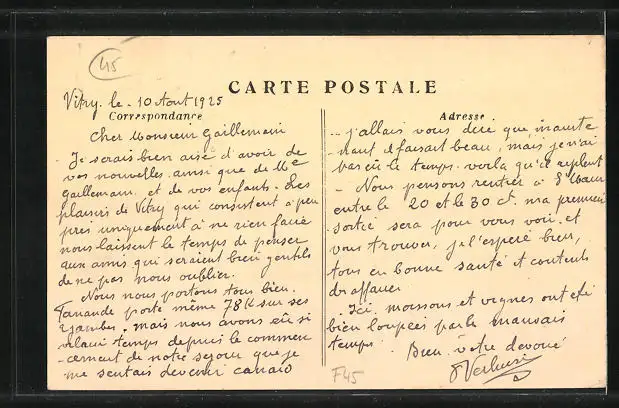 45
CARTE POSTALE
Vitry, le - 10 Aout 1925
Correspondance
Cher Monsieur Gaillemain
Je serais bien aise d'avoir de
vos nouvelles ainsi que de Me
Gaillemain et de vos enfants. Les
plaisirs de Vitry qui consistent à peu
près uniquement à ne rien faire
nous laissent le temps de penser
aux amis qui seraient bien gentils
de ne pas nous oublier.
Nous nous portons tous bien.
porte même 78K sur ses
jambes, mais nous avons eû si
vilain temps depuis le commen
-cement de notre sejour que je
me sentais devenir canard
Adresse
... j'allais vous dire que mainte
-nant il faisait beau, mais je n'ai
pas eû le temps. voila qu'il repleut
- Nous pensons rentrer à St Maur
entre le 20 et le 30 ct. ma premiere
sortie sera pour vous voir et
vous trouver, je l'espère bien,
tous en bonne santé et contents
d'affaires
Ici, moissons et vignes ont été
bien loupées par le mauvais
temps.
Bien votre devoué
F45